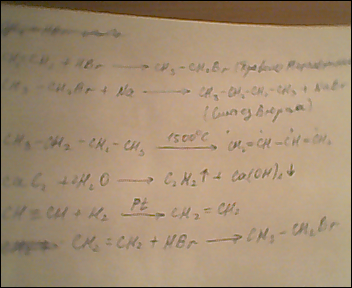 CH₂=CH₂ + HBr ⟶ CH₃ – CH₂Br (правило
CH₃ – CH₂Br + Na ⟶ CH₃–CH₂–CH₂–CH₃ + NaBr
(Синтез Вюрца)
CH₃ – CH₂ – CH₂ – CH₃ 1500°C ⟶ CH₂=CH–CH=CH₂
CaC₂ + 2H₂O ⟶ C₂H₂↑ + Ca(OH)₂↓
CH≡CH + H₂ Pt ⟶ CH₂=CH₂
CH₂=CH₂ + HBr ⟶ CH₃ – CH₂Br